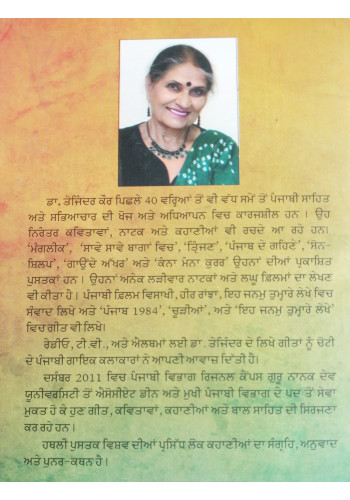 ਡਾ. ਤੇਜਿੰਦਰ ਕੌਰ ਪਿਛਲੇ 40 ਵਰ੍ਹਿਆਂ ਤੋਂ ਵੀ ਵੱਧ ਸਮੇਂ ਤੋਂ ਪੰਜਾਬੀ ਸਾਹਿਤ
ਅਤੇ ਸਭਿਆਚਾਰ ਦੀ ਖੋਜ ਅਤੇ ਅਧਿਆਪਨ ਵਿਚ ਕਾਰਜਸ਼ੀਲ ਹਨ । ਉਹ
ਨਿਰੰਤਰ ਕਵਿਤਾਵਾਂ, ਨਾਟਕ ਅਤੇ ਕਹਾਣੀਆਂ ਵੀ ਰਚਦੇ ਆ ਰਹੇ ਹਨ।
'ਮੰਗਲੀਕ', 'ਸਾਵੇ ਸਾਵੇ ਬਾਗਾਂ ਵਿਚ', 'ਤ੍ਰਿੰਜਣ', 'ਪੰਜਾਬ ਦੇ ਗਹਿਣੇ', 'ਸੋਨ-
ਸ਼ਿਲਪ', 'ਗਾਉਂਦੇ ਅੱਖਰ' ਅਤੇ 'ਕੇਨਾ ਮੇਨਾ ਕੁਰਰ' ਉਹਨਾਂ ਦੀਆਂ ਪ੍ਰਕਾਸ਼ਿਤ
ਪੁਸਤਕਾਂ ਹਨ । ਉਹਨਾਂ ਅਨੇਕ ਲੜੀਵਾਰ ਨਾਟਕਾਂ ਅਤੇ ਲਘੂ ਫ਼ਿਲਮਾਂ ਦਾ ਲੇਖਣ
ਵੀ ਕੀਤਾ ਹੈ। ਪੰਜਾਬੀ ਫ਼ਿਲਮ ਵਿਸਾਖੀ, ਹੀਰ ਰਾਂਝਾ, ਇਹ ਜਨਮੁ ਤੁਮ੍ਹਾਰੇ ਲੇਖੇ ਵਿਚ
ਸੰਵਾਦ ਲਿਖੇ ਅਤੇ 'ਪੰਜਾਬ 1984', 'ਚੂੜੀਆਂ', ਅਤੇ 'ਇਹ ਜਨਮੁ ਤੁਮ੍ਹਾਰੇ ਲੇਖੇ'
ਵਿਚ ਗੀਤ ਵੀ ਲਿਖੇ।
ਰੇਡੀਓ, ਟੀ.ਵੀ., ਅਤੇ ਐਲਬਮਾਂ ਲਈ ਡਾ. ਤੇਜਿੰਦਰ ਦੇ ਲਿਖੇ ਗੀਤਾਂ ਨੂੰ ਚੋਟੀ
ਦੇ ਪੰਜਾਬੀ ਗਾਇਕ ਕਲਾਕਾਰਾਂ ਨੇ ਆਪਣੀ ਆਵਾਜ਼ ਦਿੱਤੀ ਹੈ।
ਦਸੰਬਰ 2011 ਵਿਚ ਪੰਜਾਬੀ ਵਿਭਾਗ ਰਿਜਨਲ ਕੈਂਪਸ ਗੁਰੂ ਨਾਨਕ ਦੇਵ
ਯੂਨੀਵਰਸਿਟੀ ਤੋਂ ਐਸੋਸੀਏਟ ਡੀਨ ਅਤੇ ਮੁਖੀ ਪੰਜਾਬੀ ਵਿਭਾਗ ਦੇ ਪਦ ਤੋਂ ਸੇਵਾ
ਮੁਕਤ ਹੋ ਕੇ ਹੁਣ ਗੀਤ, ਕਵਿਤਾਵਾਂ, ਕਹਾਣੀਆਂ ਅਤੇ ਬਾਲ ਸਾਹਿਤ ਦੀ ਸਿਰਜਣਾ
ਕਰ ਰਹੇ ਹਨ।
ਹਥਲੀ ਪੁਸਤਕ ਵਿਸ਼ਵ ਦੀਆਂ ਪ੍ਰਸਿੱਧ ਲੋਕ ਕਹਾਣੀਆਂ ਦਾ ਸੰਗ੍ਰਹਿ, ਅਨੁਵਾਦ
ਅਤੇ ਪੁਨਰ-ਕਥਨ ਹੈ।